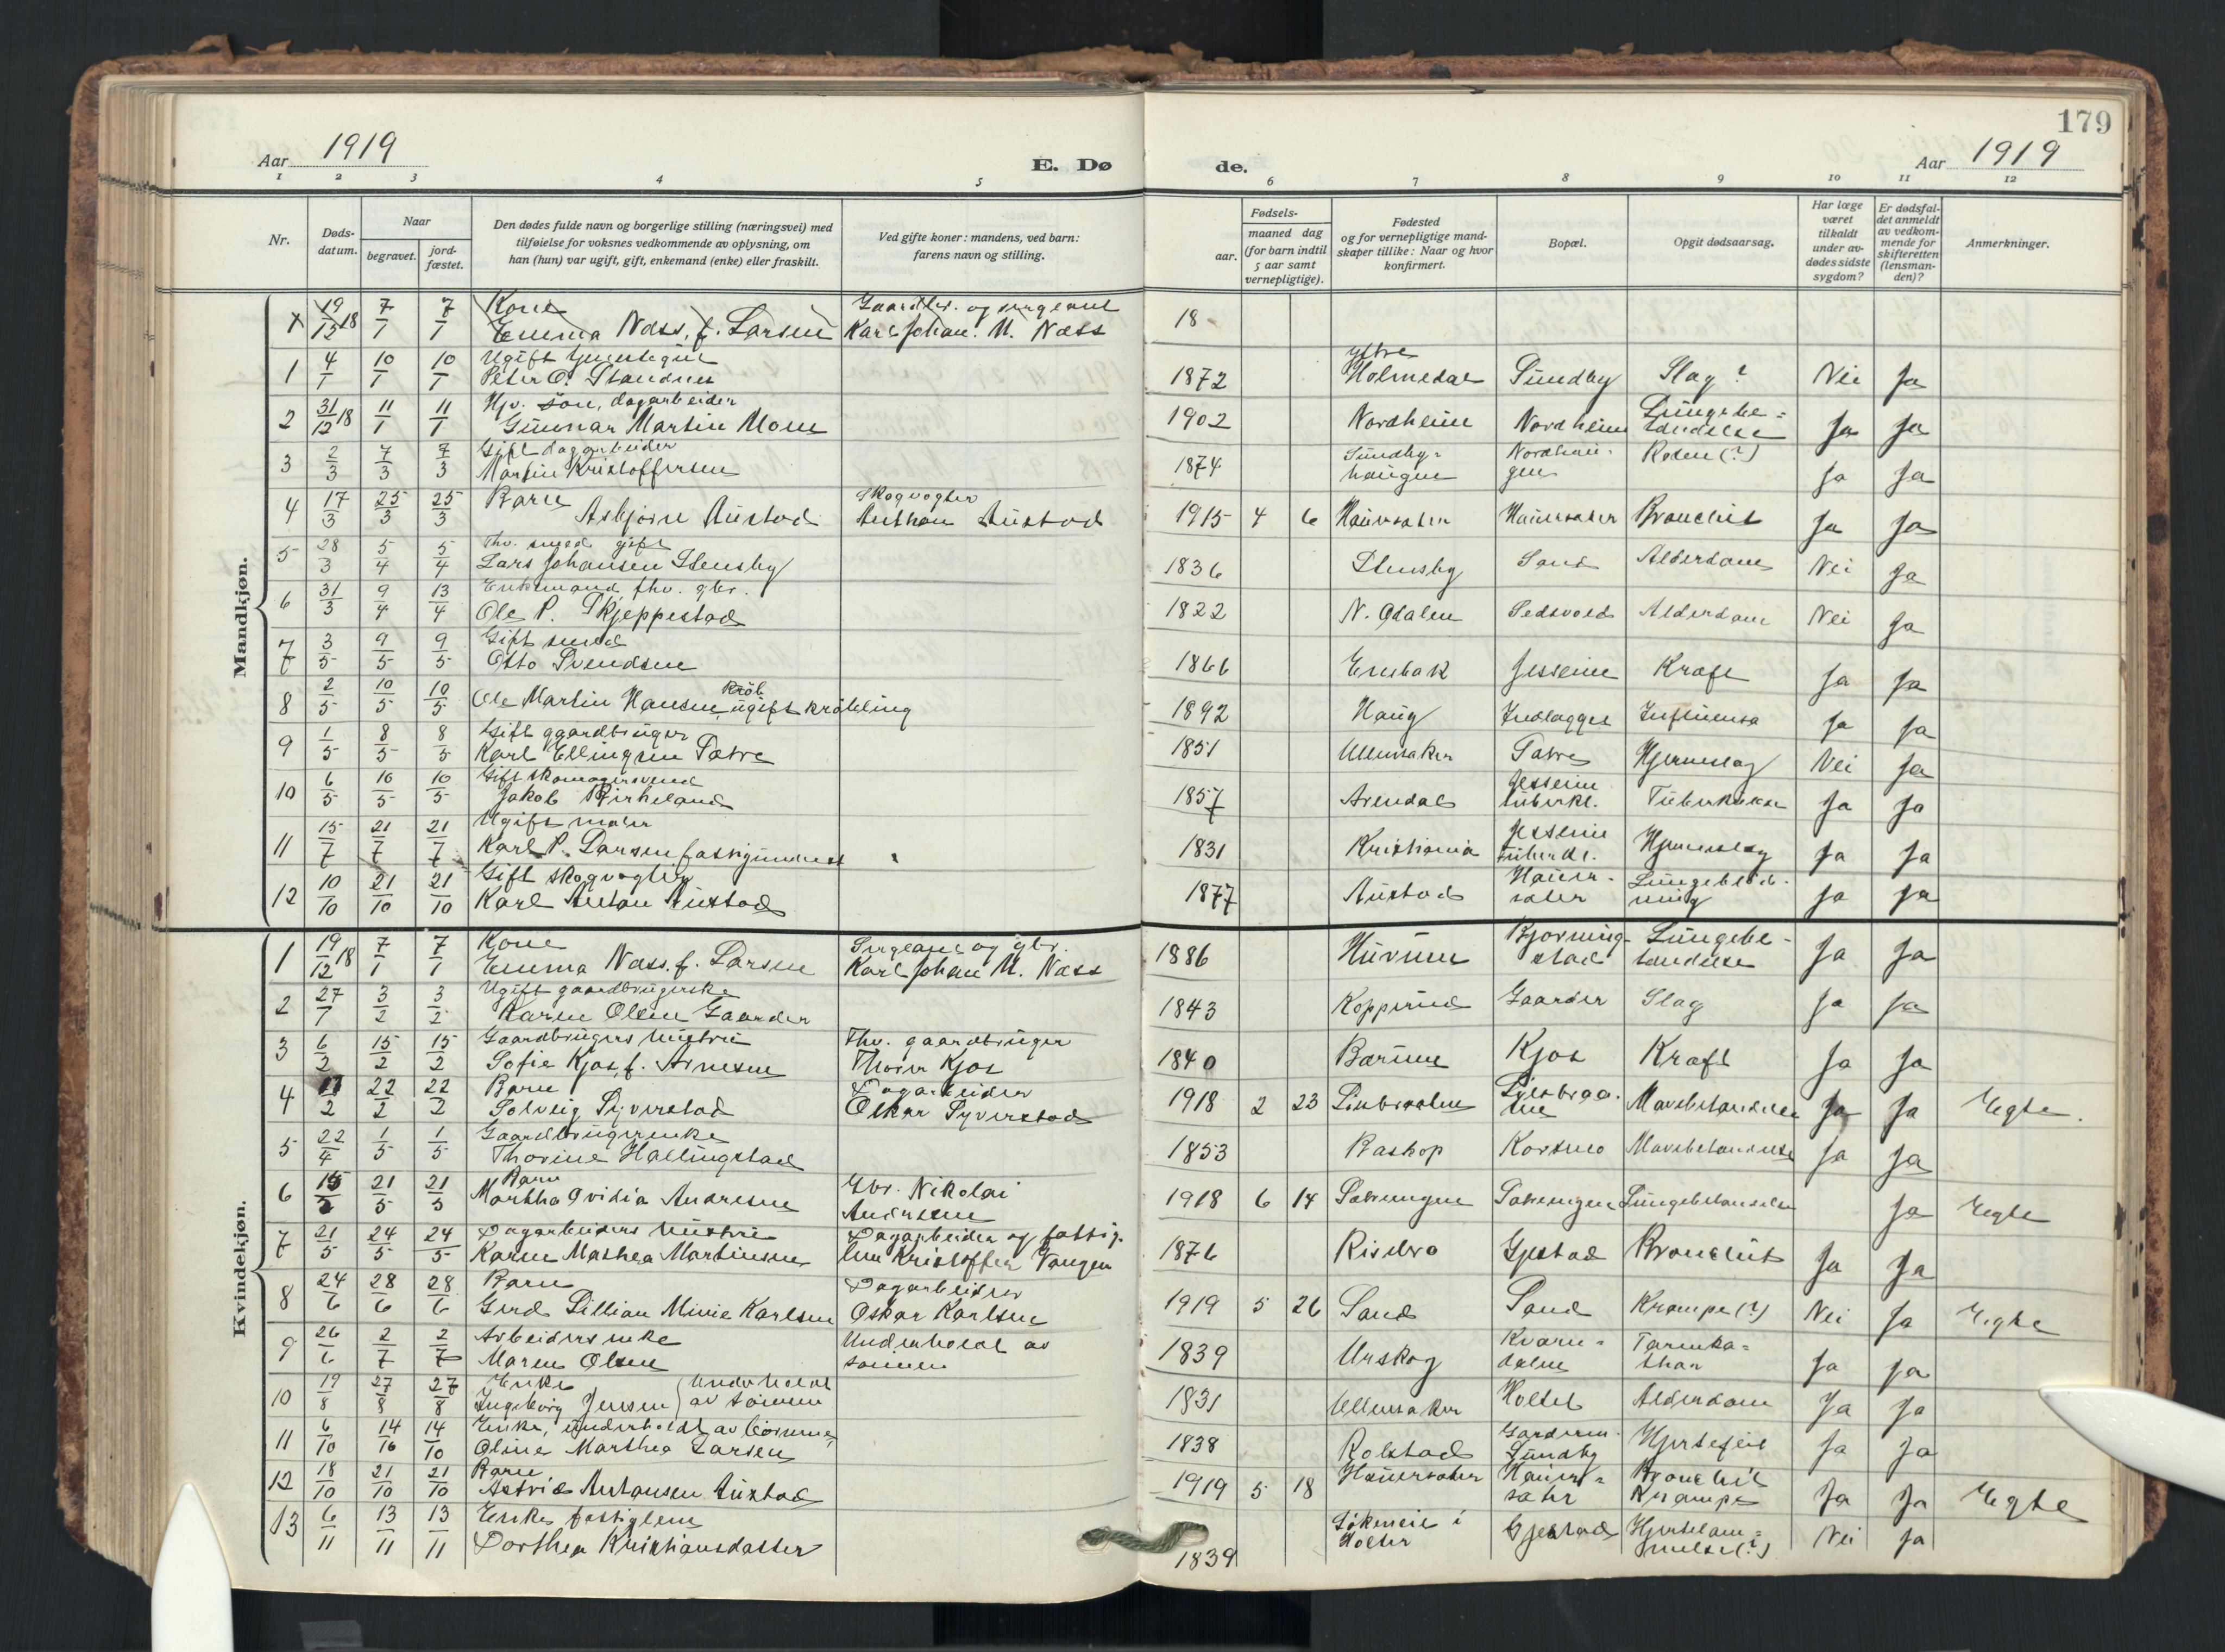 179
Aar 1919
E. Dø
de.
Aar 1919
1 2 3 4 5 6 7 8 9 10 11 12
Nr.
Døds-
datum.
Naar
begravet.
jord-
fæstet.
Den dødes fulde navn og borgerlige stilling (næringsvei) med
tilføielse for voksnes vedkommende av oplysning, om
han (hun) var ugift, gift, enkemand (enke) eller fraskilt.
Ved gifte koner: mandens, ved barn:
farens navn og stilling.
Fødsels-
aar.
maaned dag
(for barn indtil
5 aar samt
vernepligtige).
Fødested
og for vernepligtige mand-
skaper tillike: Naar og hvor
konfirmert.
Bopæl.
Opgit dødsaarsag.
Har læge
været
tilkaldt
under av-
dødes sidste
sygdom?
Er dødsfal-
det anmeldt
av vedkom-
mende for
skifteretten
(lensman-
den)?
Anmerkninger.
Mandkjøn.
19/12 18 7/1 7/1 Kone Gaardbr. og sergeant
Emma Næss, f. Larsen Karl Johan. M. Næss 18
1 4/1 10/1 10/1 Ugift
Peter O. 1872 Ytre Holmedal Sundby Slag? Nei Ja
2 31/12 18 11/1 11/1 Hjv. søn, dagarbeider
Gunnar Martin Moen 1902 Nordheim Nordheim Lungebe-
tændelse Ja Ja
3 2/3 7/3 7/3 Gift dagarbeider
Martin Kristoffersen 1874 Sundby-
haugen Rosen (?) Ja Ja
4 17/3 25/3 25/3 Barn Skogvogter
Asbjørn Austad Anthon Austad 1915 4 6 Hauersæter Hauersæter Bronchit Ja Ja
5 28/3 5/4 5/4 Fhv. smed gift
Lars Johansen Stensby 1836 Stensby Sand Alderdom Nei Ja
6 31/3 9/4 13/4 Enkemand fhv. gbr.
Ole P. Skjeppestad 1822 N. Odalen Alderdom Nei Ja
7 3/5 9/5 9/5 Gift smed
Otto Svendsen 1866 Enebak Jessheim Kræft Ja Ja
8 2/5 10/5 10/5 Ole Martin Hansen, ugift krøbling 1892 Haug Indlægget Influensa Ja Ja
9 1/5 8/5 8/5 Gift gaardbruger
Karl Ellingsen Sætre 1851 Ullensaker Sætre Hjerneslag Nei Ja
10 6/5 10/5 10/5 Gift skomagersvend
Jakob Birkeland 1857 Arendal Jessheim
tuberkl. Tuberkulose Ja Ja
11 15/7 21/7 21/7 Ugift maler
Karl P. Larsen, fattigunderst 1831 Kristiania Jessheim
tuberkl. Hjerneslag Ja Ja
12 10/10 21/10 21/10 Gift skogvogter
Karl Anton Austad 1877 Austad Hauer-
sæter Lungeblød-
ning Ja Ja
Kvindekjøn.
1 19/12 18 7/1 7/1 Kone Sergeant og gbr.
Emma Næss, f. Larsen Karl Johan M. Næss 1886 Hurum Bjørning-
stad Lungebe-
tændelse Ja Ja
2 27/1 3/2 3/2 Ugift gaardbrugerske
Karen Olsen Gaarder 1843 Kopperud Gaarder Slag Ja Ja
3 6/2 15/2 15/2 Gaardbrugers hustru Fhv. gaardbruger
Sofie Kjos, f. Arnesen Thorer Kjos 1840 Bærum Kjos Kræft Ja Ja
4 /2 22/2 22/2 Barn Dagarbeider
Solveig Syverstad Oskar Syverstad 1918 2 23 Mavebetændelse Ja Ja Egte.
5 22/4 1/5 1/5 Gaardbrugerenke
Thorine Hallingstad 1853 Baskop Korsmo Mavebetændelse Ja Ja
6 15/ 21/5 21/5 Barn Gbr. Nikolai
Martha Ovidia Andresen Andresen 1918 6 14 Sætrengen Sætrengen Lungebetændelse Ja Egte
7 21/5 24/5 24/5 Dagarbeiders hustru Dagarbeider og fattig-
Karen Mathea Martinsen lem Kristoffer Vangen 1876 Risebro Gjestad Bronchit Ja Ja
8 24/6 28/6 28/6 Barn Dagarbeider
Gerd Lillian Minie Karlsen Oskar Karlsen 1919 5 26 Sand Sand Krampe (?) Nei Ja Egte
9 26/6 2/7 2/7 Arbeiders enke Underholdt av
Maren Olsen sønnen 1839 Urskog Kværn-
dalen Tarmka-
thar Ja Ja
10 19/8 27/8 27/8 Enke Underholdt
Ingeborg Jensen av sønnen 1831 Ullensaker Holtet Alderdom Ja Ja
11 6/10 14/10 14/10 Enke, underholdt av børnene
Oline Marthea Larsen 1838 Rolstad Garderm.
Sundby Hjertefeil Ja Ja
12 18/10 21/10 21/10 Barn
Astrid Anthonsen Austad 1919 5 18 Hauersæter Hauer-
sæter Bronchit
Krampe Ja Ja Egte
13 6/11 13/11 13/11 Enke, fattiglem
Dorthea Kristiansdatter 1839 i
Holter Gjestad Hjertelam-
melse (?) Nei Ja